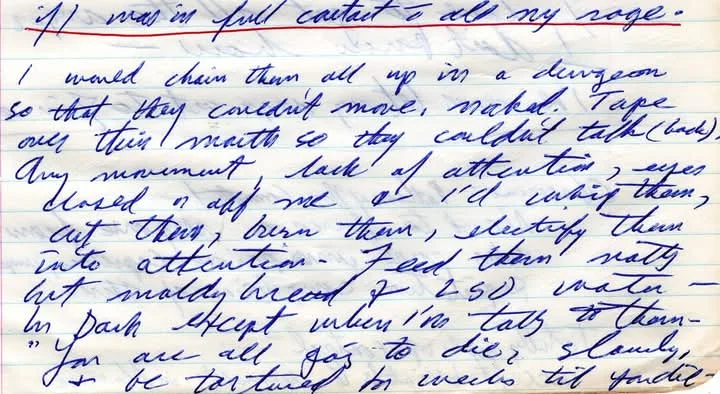 if I was in full contact c̄ all my rage.
I would chain them all up in a dungeon
so that they couldn't move, naked. Tape
over their mouth so they couldn't talk (back).
Any movement, lack of attention, eyes
closed or off me & I'd whip them,
cut them, burn them, electrify them
into attention. Feed them
but moldy bread & LSD water –
In Dark except when I'm talkg to them –
"You are all gog to die, slowly,
& be tortured for weeks til you die –